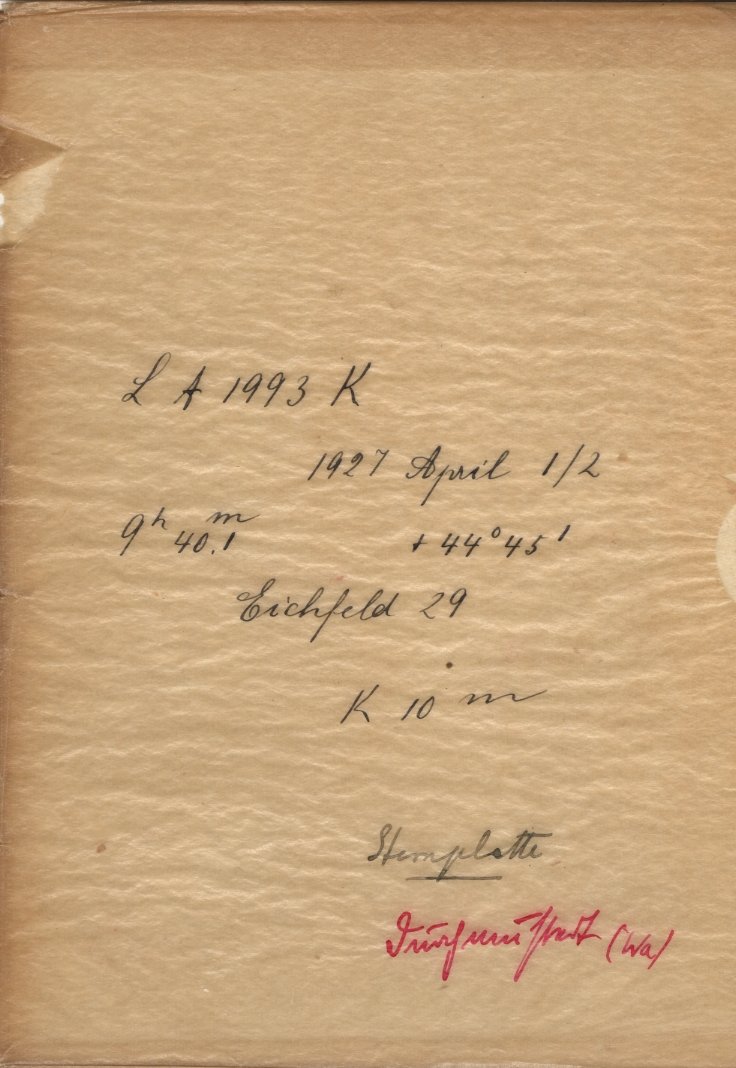 L A 1993 K
1927 April 1/2
9ʰ 40.1ᵐ +44°45'
Eichfeld 29
K 10 m
Sternplatte
(Wa)